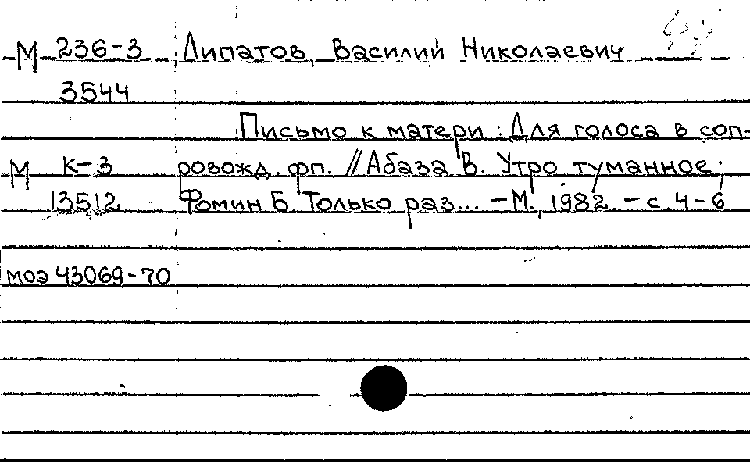 М 236-3 Липатов, Василий Николаевич
3544
Письмо к матери : Для голоса в соп-
М К-3 ровожд. фп. // Абаза В. Утро туманное;
13512 Фомин Б. Только раз... – М., 1982 – с. 4-6
моэ 43069-70